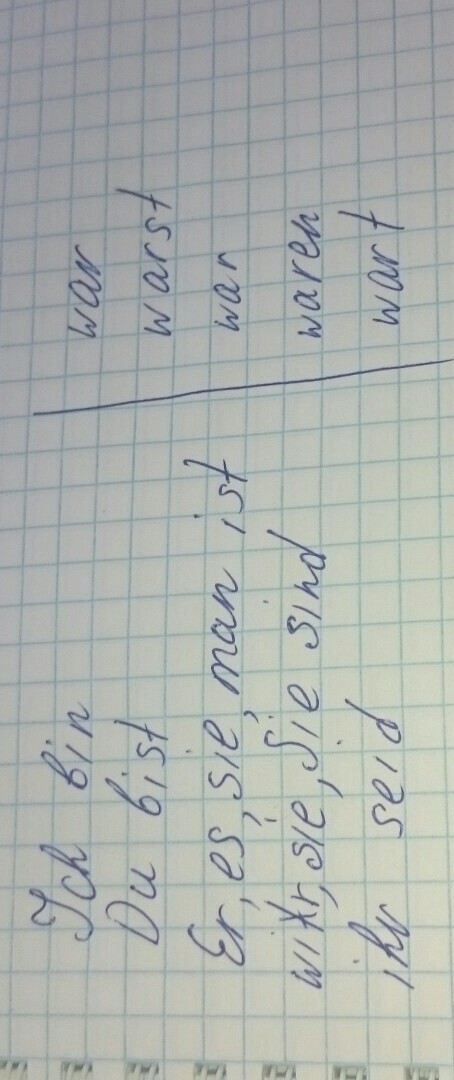 Ich bin war
Du bist warst
Er, es, sie, man ist war
wir, sie, Sie sind waren
ihr seid wart